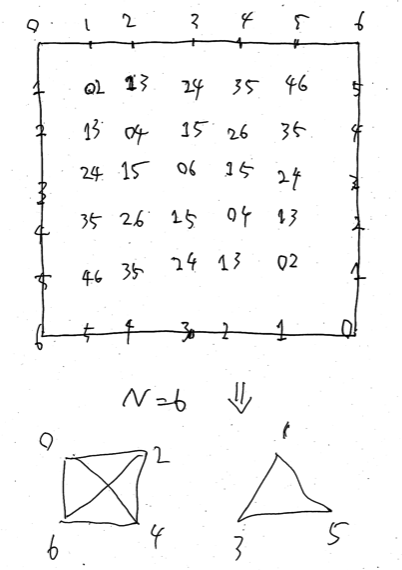 0 1 2 3 4 5 6
1 02 13 24 35 46 5
2 13 04 15 26 35 4
3 24 15 06 15 24 3
4 35 26 15 04 13 2
5 46 35 24 13 02 1
6 5 4 3 2 1 0
N=6 ⇓
0 2 1
6 4 3 5